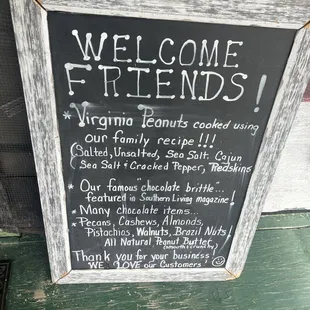 WELCOME
FRIENDS!
* Virginia Peanuts cooked using
our family recipe !!!
(Salted, Unsalted, Sea Salt, Cajun
Sea Salt & Cracked Pepper, Redskins
* Our famous "chocolate brittle...
featured in Southern Living magazine!
* Many chocolate items...
* Pecans, Cashews, Almonds,
Pistachios, Walnuts, Brazil Nuts!
All Natural Peanut Butter
(smooth & crunchy)
Thank you for your business
WE LOVE our Customers